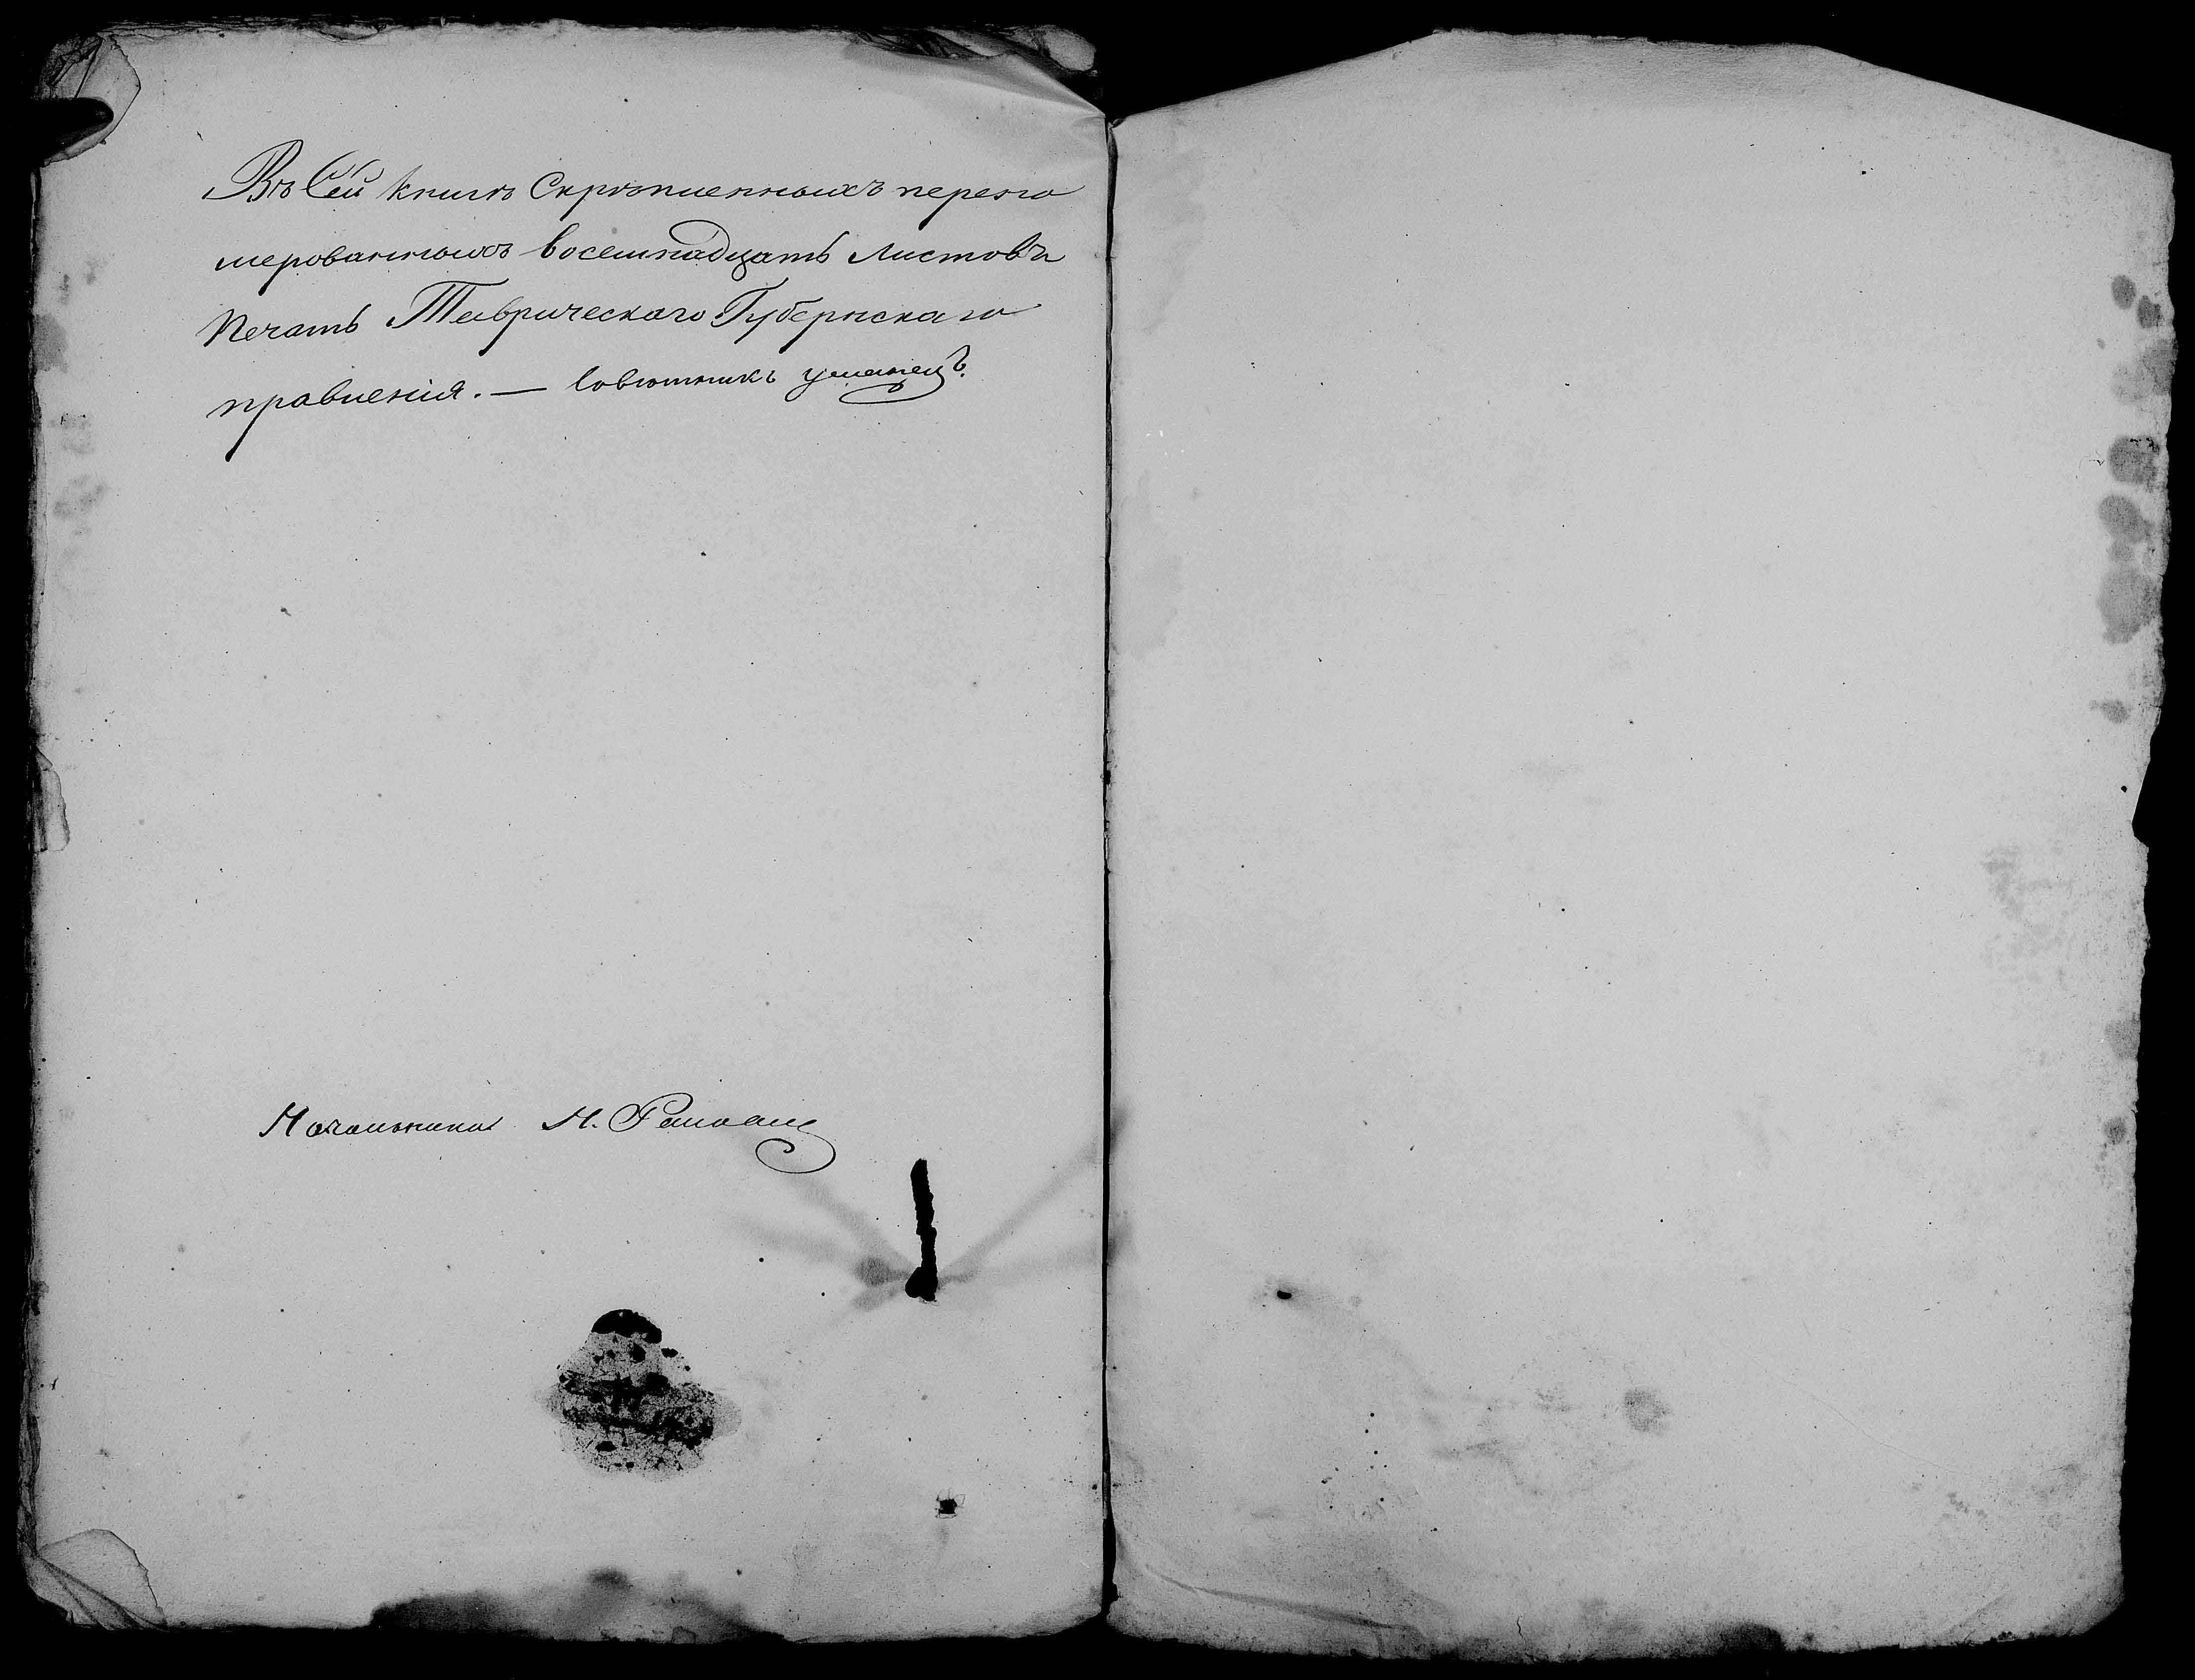 Въ Сей книгѣ Скрѣпленныхъ перено
мерованныхъ восемнадцать листовъ
Печать Таврическаго Губернскаго
правленія. — Совѣтникъ Уманецъ.
Начальникъ Н.